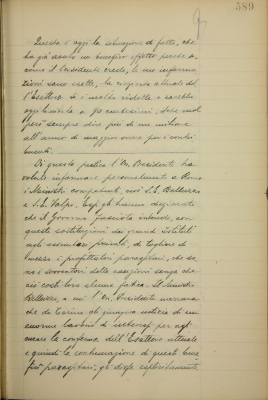 589
Questa è oggi la situazione di fatto, che
ha già avuto un benefico effetto perchè a,
come il Presidente crede, le sue informa
zioni sono esatte, la
l'Esattore si è molto ridotto e sarebbe
a 90 centesimi,
però sempre dire più di un milione
all'anno di maggior onere per i contri
buenti.
Di questa pratica l'On. Presidente ha
voluto informare personalmente a Roma
i Ministri competenti, cioè S.E. Belluzzo
e S.E. Volpi. Egli gli hanno dichiarato
che il Governo fascista intende, con
queste sostituzioni dei grandi istituti
agli assuntori privati, di togliere di
mezzo i profittatori parassitari, che so
no i sovventori delle esazioni senza che
ciò costi loro alcuna fatica. Il Ministro
Belluzzo, a cui l'On. Presidente narrava
che da Torino gli giungeva notizia di un
enorme lavorio di interessi per otte
nere la conferma dell'Esattore attuale
e quindi la continuazione di questi bene
fici parassitari, gli disse esplicitamente